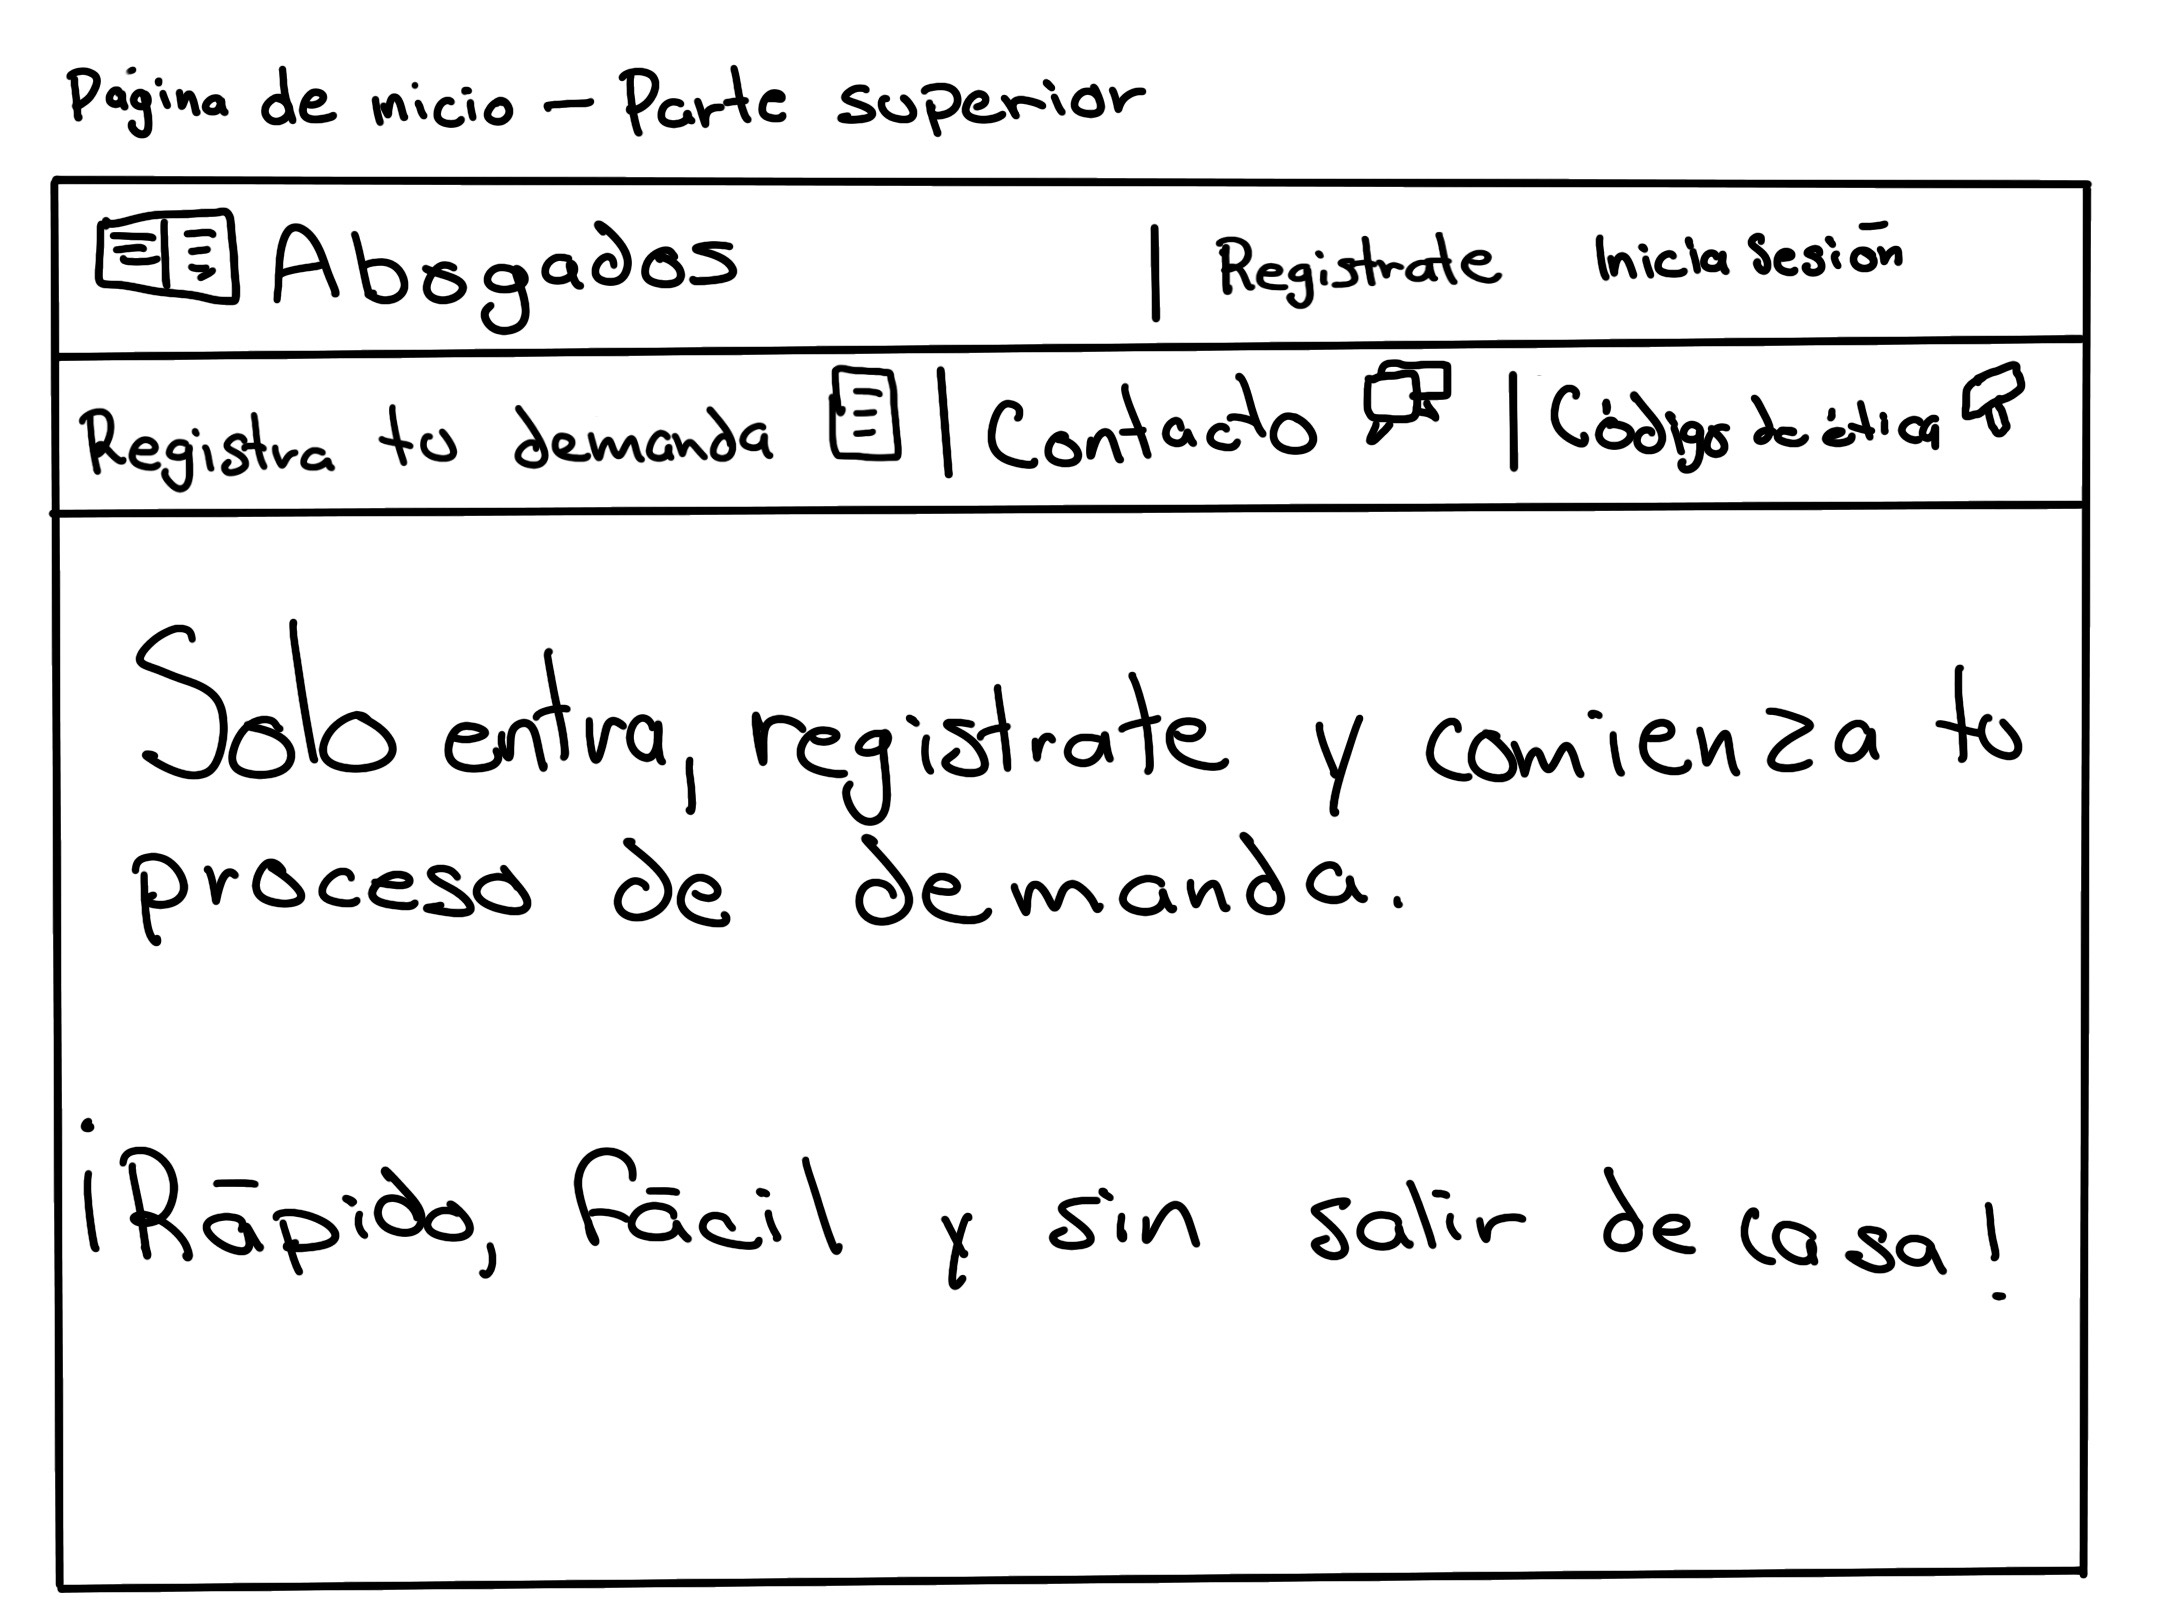 Página de inicio - Parte superior
Abogados | Registrate Inicia Sesión
Registra tu demanda | Contacto | Código de ética
Solo entra, registrate y comienza tu
proceso de demanda.
¡Rápido, fácil y sin salir de casa!